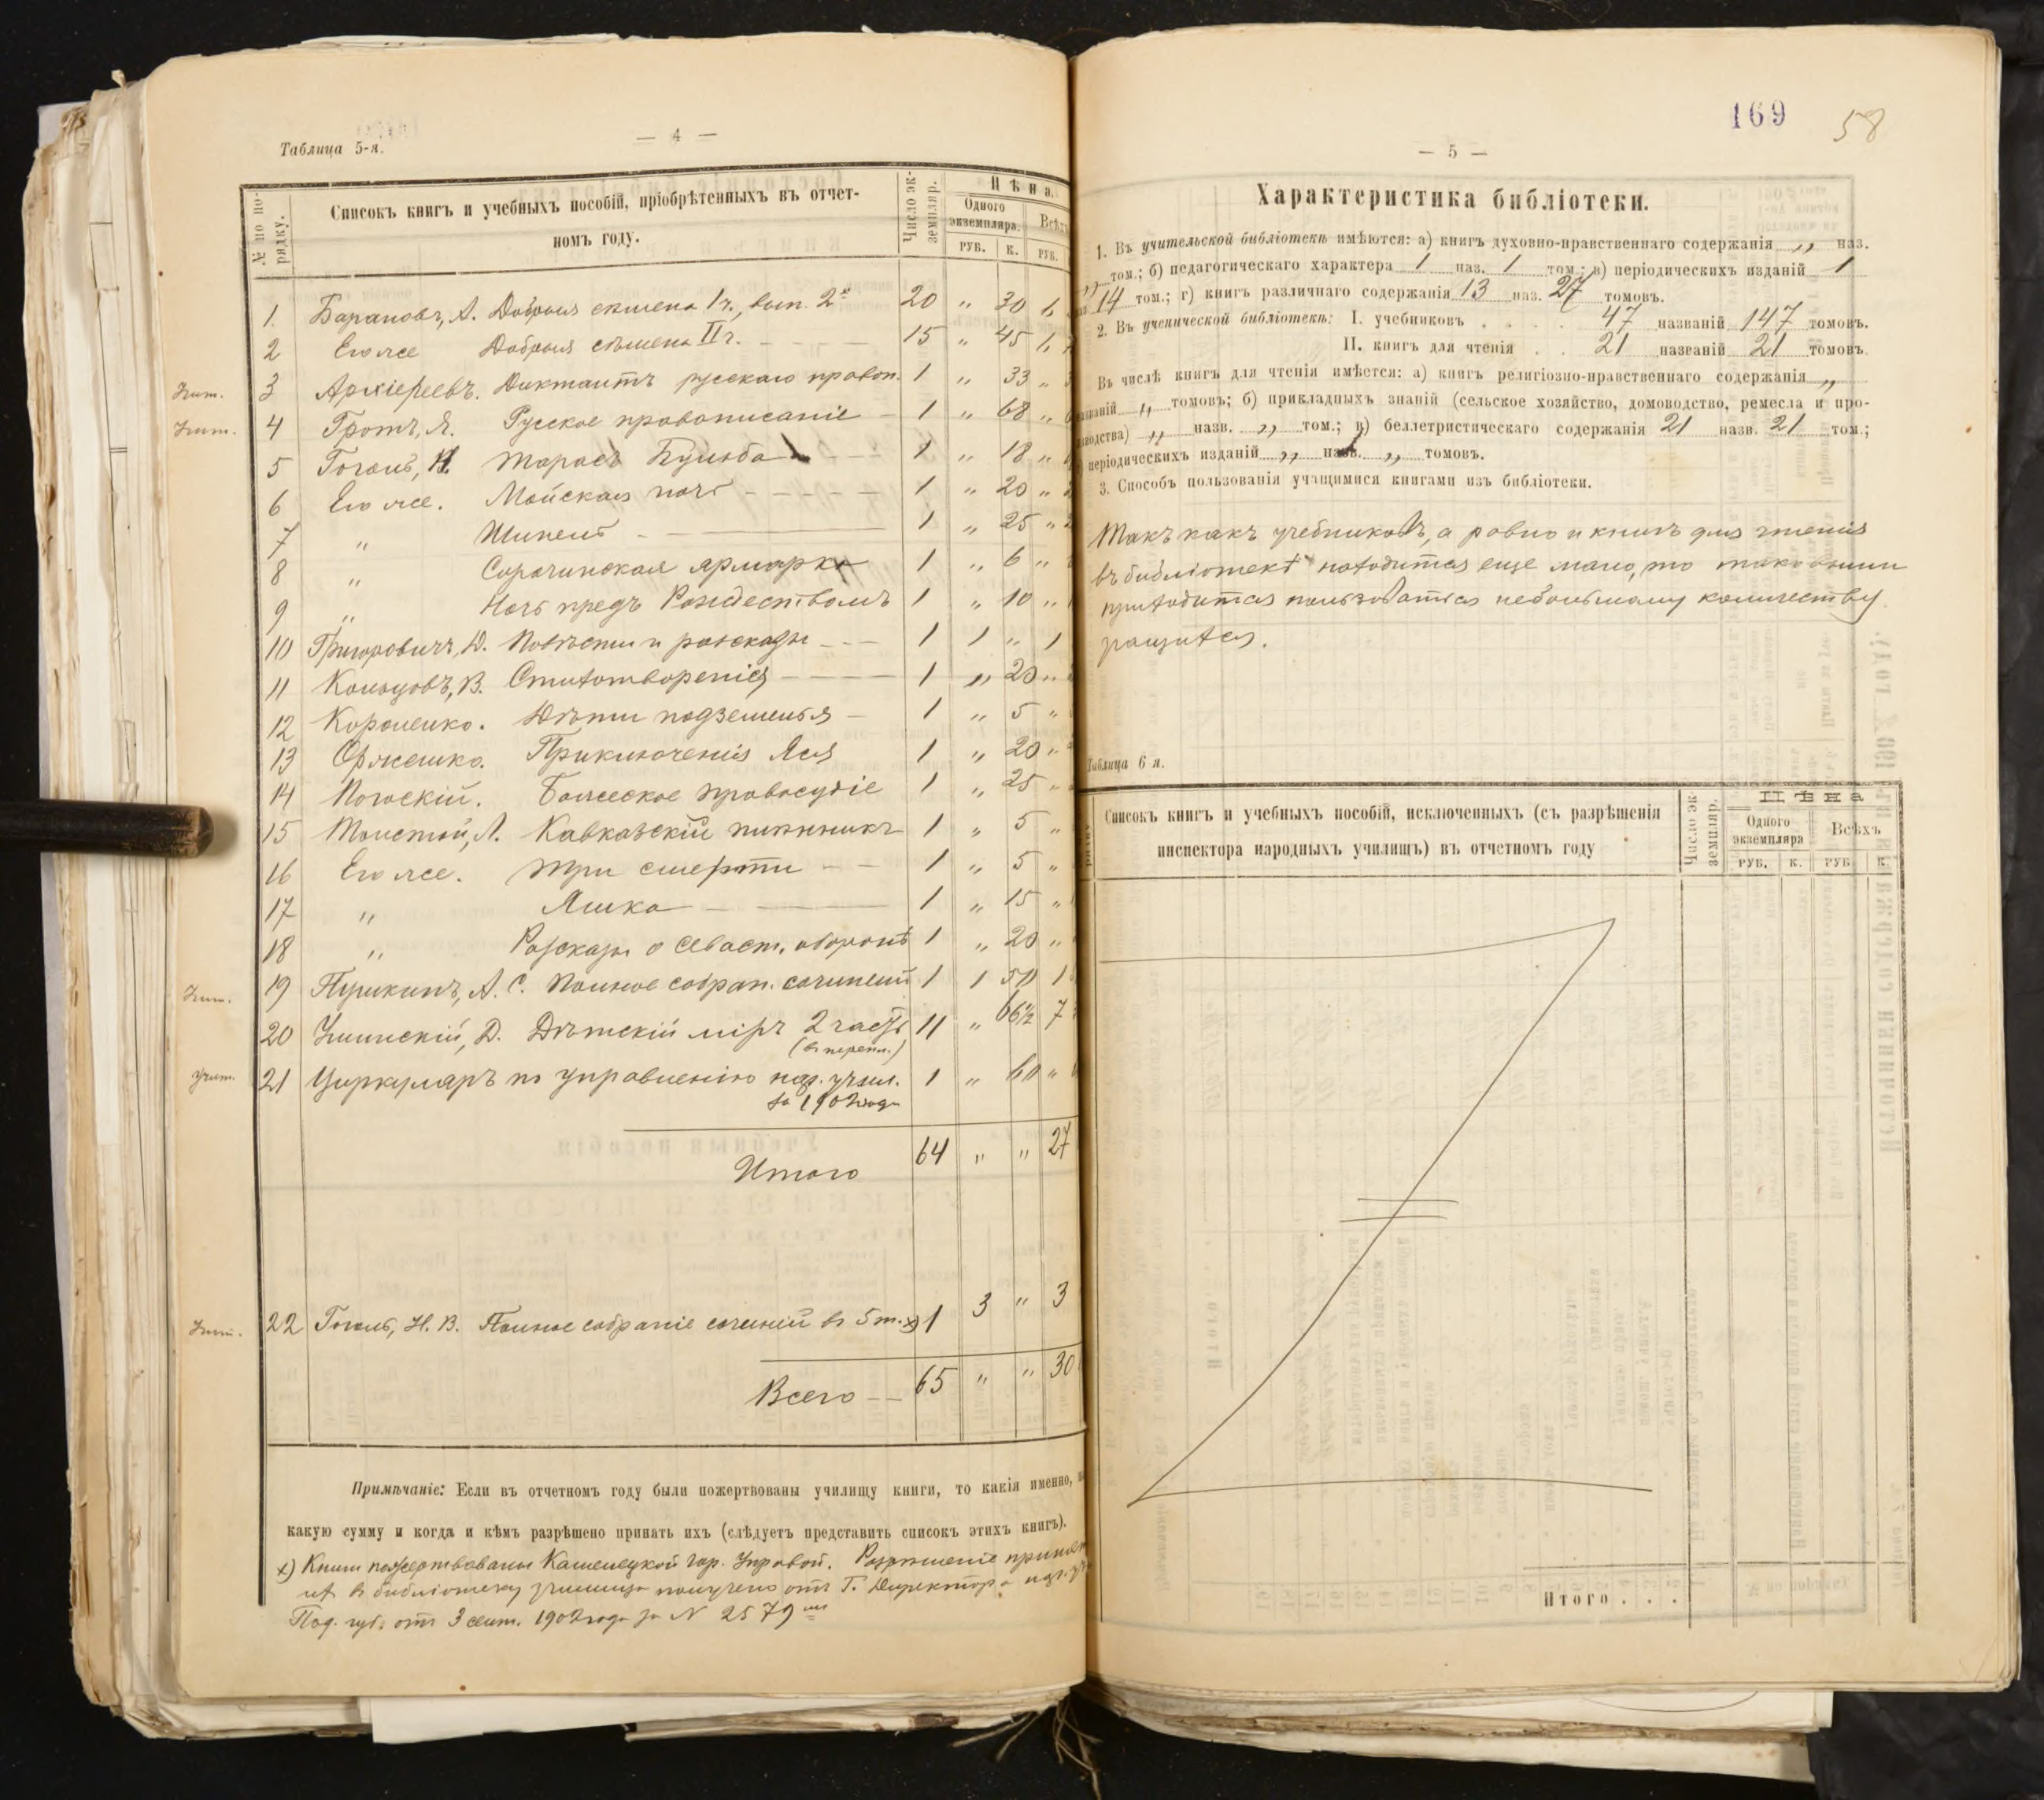 — 4 —
Таблица 5-я.
№ по порядку.
Списокъ книгъ и учебныхъ пособій, пріобрѣтенныхъ въ отчет-
номъ году.
Число экземпляр.
Цѣна.
Одного экземпляра.
Всѣхъ
РУБ. К. РУБ.
1. Барановъ, А. Добрыя сѣмена 1 ч., вып. 2й 20 „ 30 6
2 Его же Добрыя сѣмена II ч. 15 „ 45 6
Учит. 3 Архіереевъ. Диктантъ русскаго правоп. 1 „ 33 „
Учит. 4 Гротъ, Я. Русское правописаніе 1 „ 68 „
5 Гоголь, Н. Тарасъ Бульба 1 „ 18 „
6 Его же. Майская ночь 1 „ 20 „
7 „ Шинель 1 „ 25 „
8 „ Сорочинская ярмарка 1 „ 6 „
9 „ Ночь предъ Рождествомъ 1 „ 10 „
10 Григоровичъ, Д. Повѣсти и разсказы 1 1 „ 1
11 Кольцовъ, В. Стихотворенія 1 „ 20 „
12 Короленко. Дѣти подземелья 1 „ 5 „
13 Оржешко. Приключенія Яся 1 „ 20 „
14 Погоскій. Божеское правосудіе 1 „ 25 „
15 Толстой, Л. Кавказскій плѣнникъ 1 „ 5 „
16 Его же. Три смерти 1 „ 5 „
17 „ Яшка 1 „ 15 „
18 „ Разсказы о Севаст. оборонѣ 1 „ 20 „
Учит. 19 Пушкинъ, А. С. Полное собран. сочиненій 1 1 50 1
20 Ушинскій, Д. Дѣтскій міръ 2 часть 11 „ 66½ 7
(въ переп.)
учит. 21 Циркуляръ по управленію нар. учил. 1 „ 60 „
за 1902 годъ
Итого 64 „ „ 27
Учит. 22 Гоголь, Н. В. Полное собраніе сочиній въ 5 т. х) 1 3 „ 3
Всего — — 65 „ „ 30
Примѣчаніе: Если въ отчетномъ году были пожертвованы училищу книги, то какія именно,
какую сумму и когда и кѣмъ разрѣшено принять ихъ (слѣдуетъ представить списокъ этихъ книгъ).
х) Книги пожертвованы Каменецкой гор. Управой. Разрѣшеніе принять
ихъ въ библіотеку училища получено отъ Г. Директора
Под. губ. отъ 3 сент. 1902 года за № 2579
169 58
— 5 —
Характеристика библіотеки.
1. Въ учительской библіотекѣ имѣются: а) книгъ духовно-нравственнаго содержанія „ наз.
„ том.; б) педагогическаго характера 1 наз. 1 том.; в) періодическихъ изданій 1
наз 14 том.; г) книгъ различнаго содержанія 13 наз. 27 томовъ.
2. Въ ученической библіотекѣ: I. учебниковъ . . . . 47 названій 147 томовъ.
II. книгъ для чтенія . . 21 названій 21 томовъ.
Въ числѣ книгъ для чтенія имѣется: а) книгъ религіозно-нравственнаго содержанія „
названій „ томовъ; б) прикладныхъ знаній (сельское хозяйство, домоводство, ремесла и про-
изводства) „ назв. „ том.; в) беллетристическаго содержанія 21 назв. 21 том.;
періодическихъ изданій „ назв. „ томовъ.
3. Способъ пользованія учащимися книгами изъ библіотеки.
Такъ какъ учебниковъ, а ровно и книгъ для чтенія
въ библіотекѣ находится еще мало, то таковыми
приходится пользоваться небольшому количеству
учащихся.
Таблица 6 я.
Списокъ книгъ и учебныхъ пособій, исключенныхъ (съ разрѣшенія
инспектора народныхъ училищъ) въ отчетномъ году
Число экземпляр.
Цѣна
Одного экземпляра
Всѣхъ
РУБ. К. РУБ К
Итого . . .